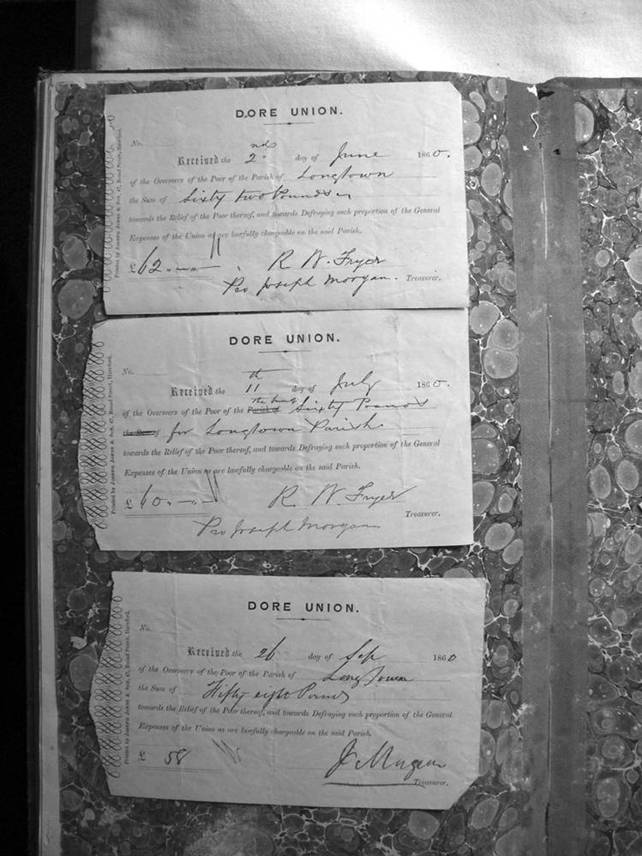 DORE UNION.
No.
Received the 2nd day of June 1860.
of the Overseers of the Poor of the Parish of Longtown
the Sum of Sixty two Pounds
towards the Relief of the Poor thereof, and towards Defraying such proportion of the General
Expenses of the Union as are lawfully chargeable on the said Parish.
£62.—.— R. W. Fryer
Pro Joseph Morgan. Treasurer.
Printed by Joseph Jones & Son, 47, Broad Street, Hereford.
DORE UNION.
No.
Received the 11th day of July 1860.
of the Overseers of the Poor of the Parish of Sixty Pounds
for Longtown Parish
towards the Relief of the Poor thereof, and towards Defraying such proportion of the General
Expenses of the Union as are lawfully chargeable on the said Parish.
£60.—.— R. W. Fryer
Treasurer.
Pro Joseph Morgan
Printed by Joseph Jones & Son, 47, Broad Street, Hereford.
DORE UNION.
No.
Received the 26 day of Sep 1860
of the Overseers of the Poor of the Parish of Longtown
the Sum of Fifty eight Pounds
towards the Relief of the Poor thereof, and towards Defraying such proportion of the General
Expenses of the Union as are lawfully chargeable on the said Parish.
£ 58 J Morgan
Treasurer.
Printed by Joseph Jones & Son, 47, Broad Street, Hereford.